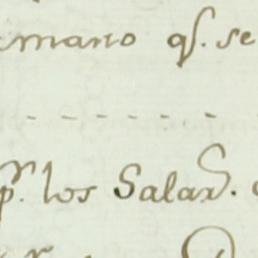 emano qs. se
- - - - - -
pr. los Salars.